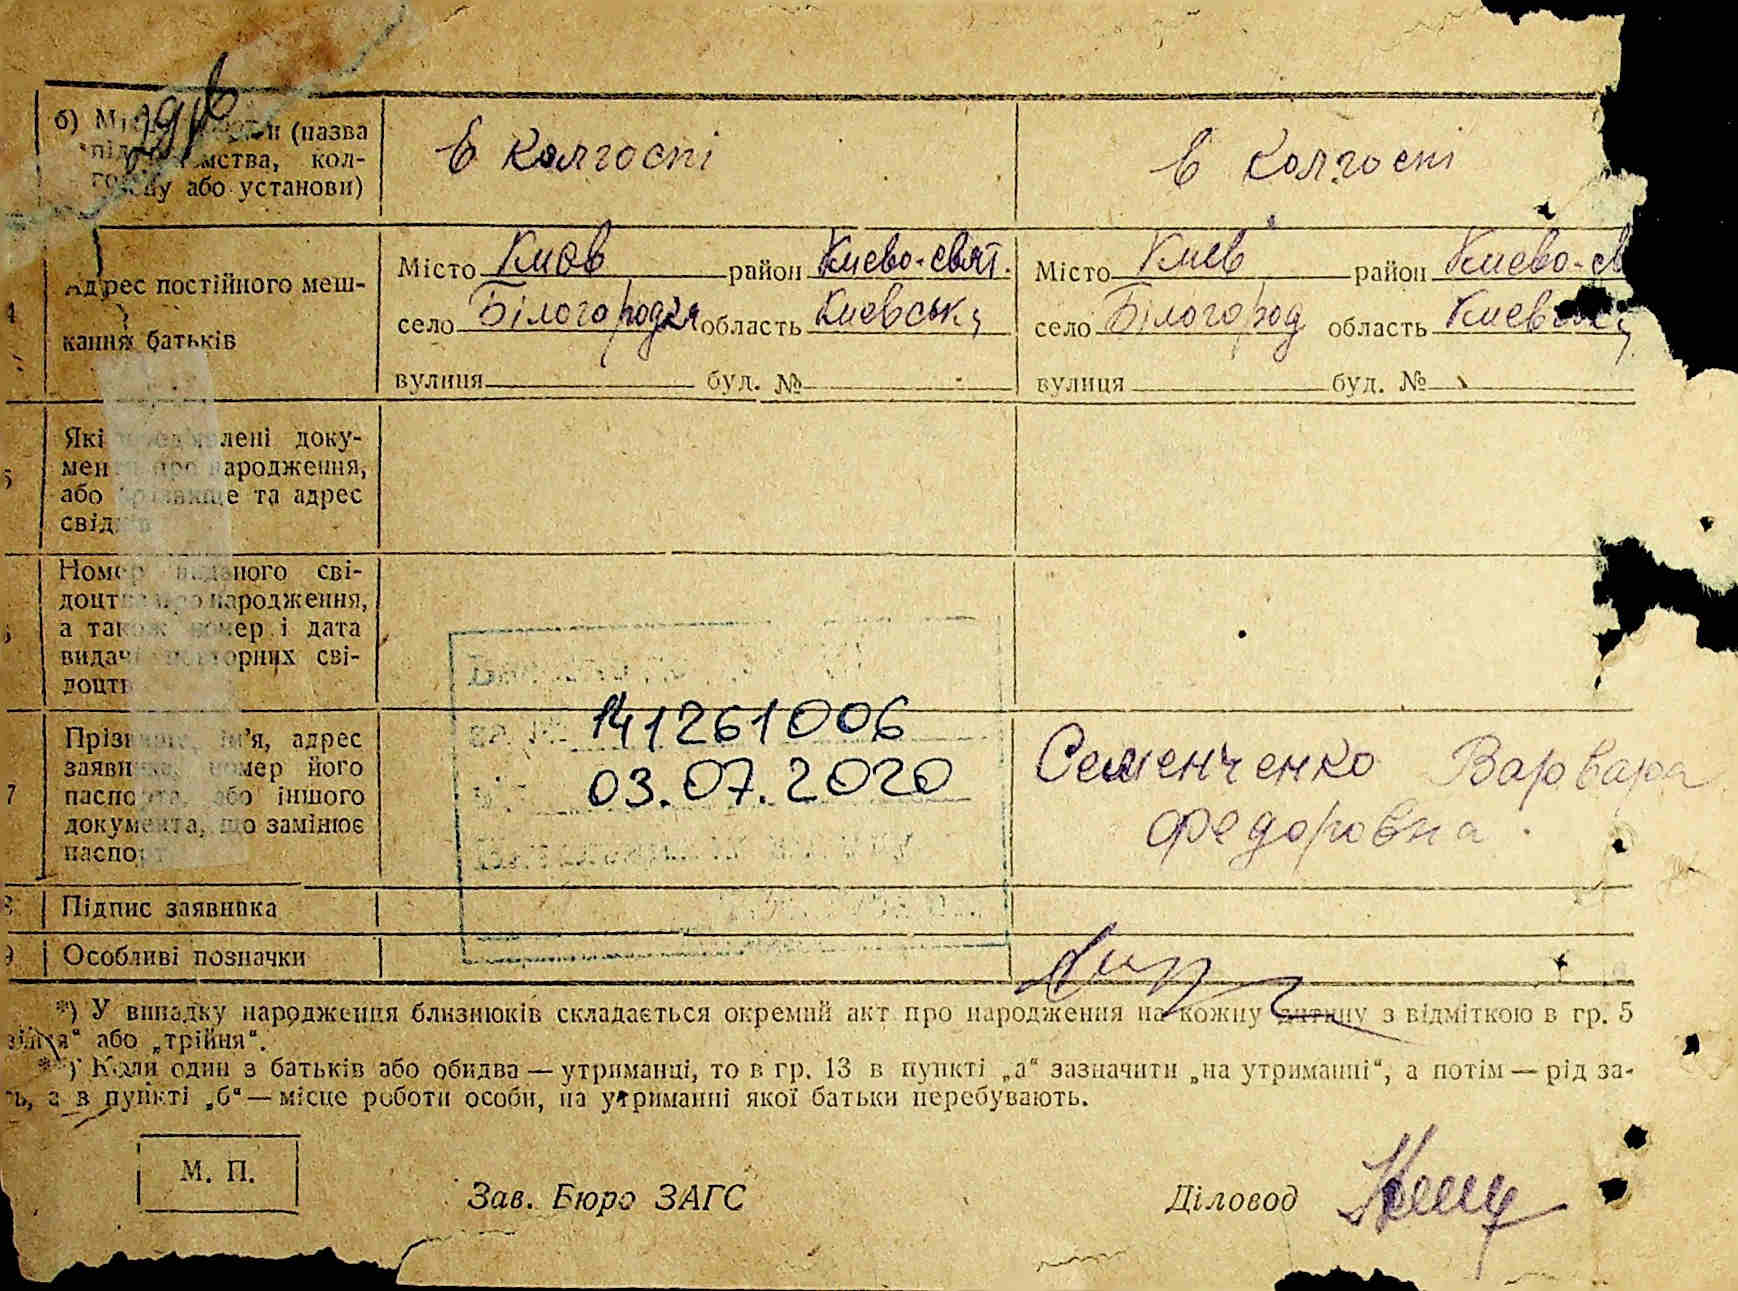 б) (назва
кол-
або установи)
в колгоспі
в колгоспі
Адрес постійного меш-
кання батьків
Місто Киев район Києво-свят.
село Білогородка область Киевська
вулиця буд. №
Місто Киев район Києво-св
село Білогород область Киевська
вулиця буд. №
Які доку-
народження,
або прізвище та адрес
свідків
Номер виданого сві-
доцтва про народження,
а також номер і дата
видачі повторних сві-
доцтв
141261006
03.07.2020
7 Прізвище, ім'я, адрес
заявника, номер його
паспорта, або іншого
документа, що замінює
паспорт
Семенченко Варвара
Федоровна.
Підпис заявника
9 Особливі позначки
*) У випадку народження близнюків складається окремий акт про народження на кожну дитину з відміткою в гр. 5
або „трійня“.
**) Коли один з батьків або обидва — утриманці, то в гр. 13 в пункті „а“ зазначити „на утриманні“, а потім — рід за-
а в пункті „б“ — місце роботи особи, на утриманні якої батьки перебувають.
М. П.
Зав. Бюро ЗАГС
Діловод